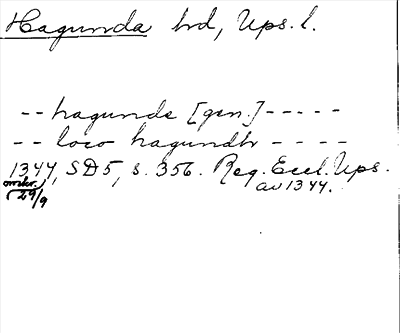 Hagunda hd, Ups. l.
-- hagunde [gen.] -----
-- loco hagundh ----
1344, SD5, s. 356. Reg. Eccl. Ups.
omkr. av 1344.
29/9